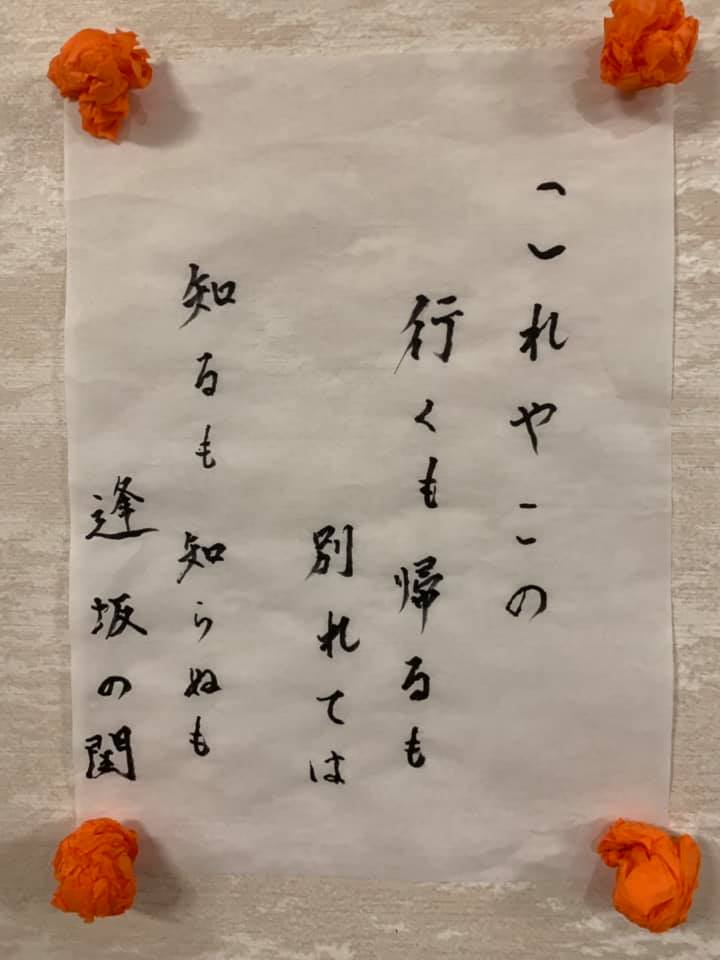 これやこの
行くも帰るも
別れては
知るも 知らぬも
逢坂の関